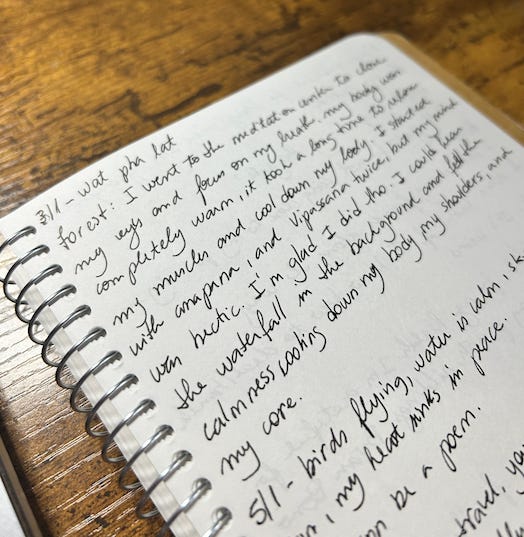 3/1 - Wat pha lat
forest: I went to the meditation center to close
my eyes and focus on my health. my body was
completely warm, it took a long time to relax
my muscles and cool down my body. I started
with anapana, and Vipassana twice, but my mind
was hectic. I'm glad I did tho. I could hear
the waterfall in the background and felt the
calmness cooling down my body, my shoulders, and
my core.
5/1 - birds flying, water is calm,
, my heat sinks in peace.
be a poem.
travel,